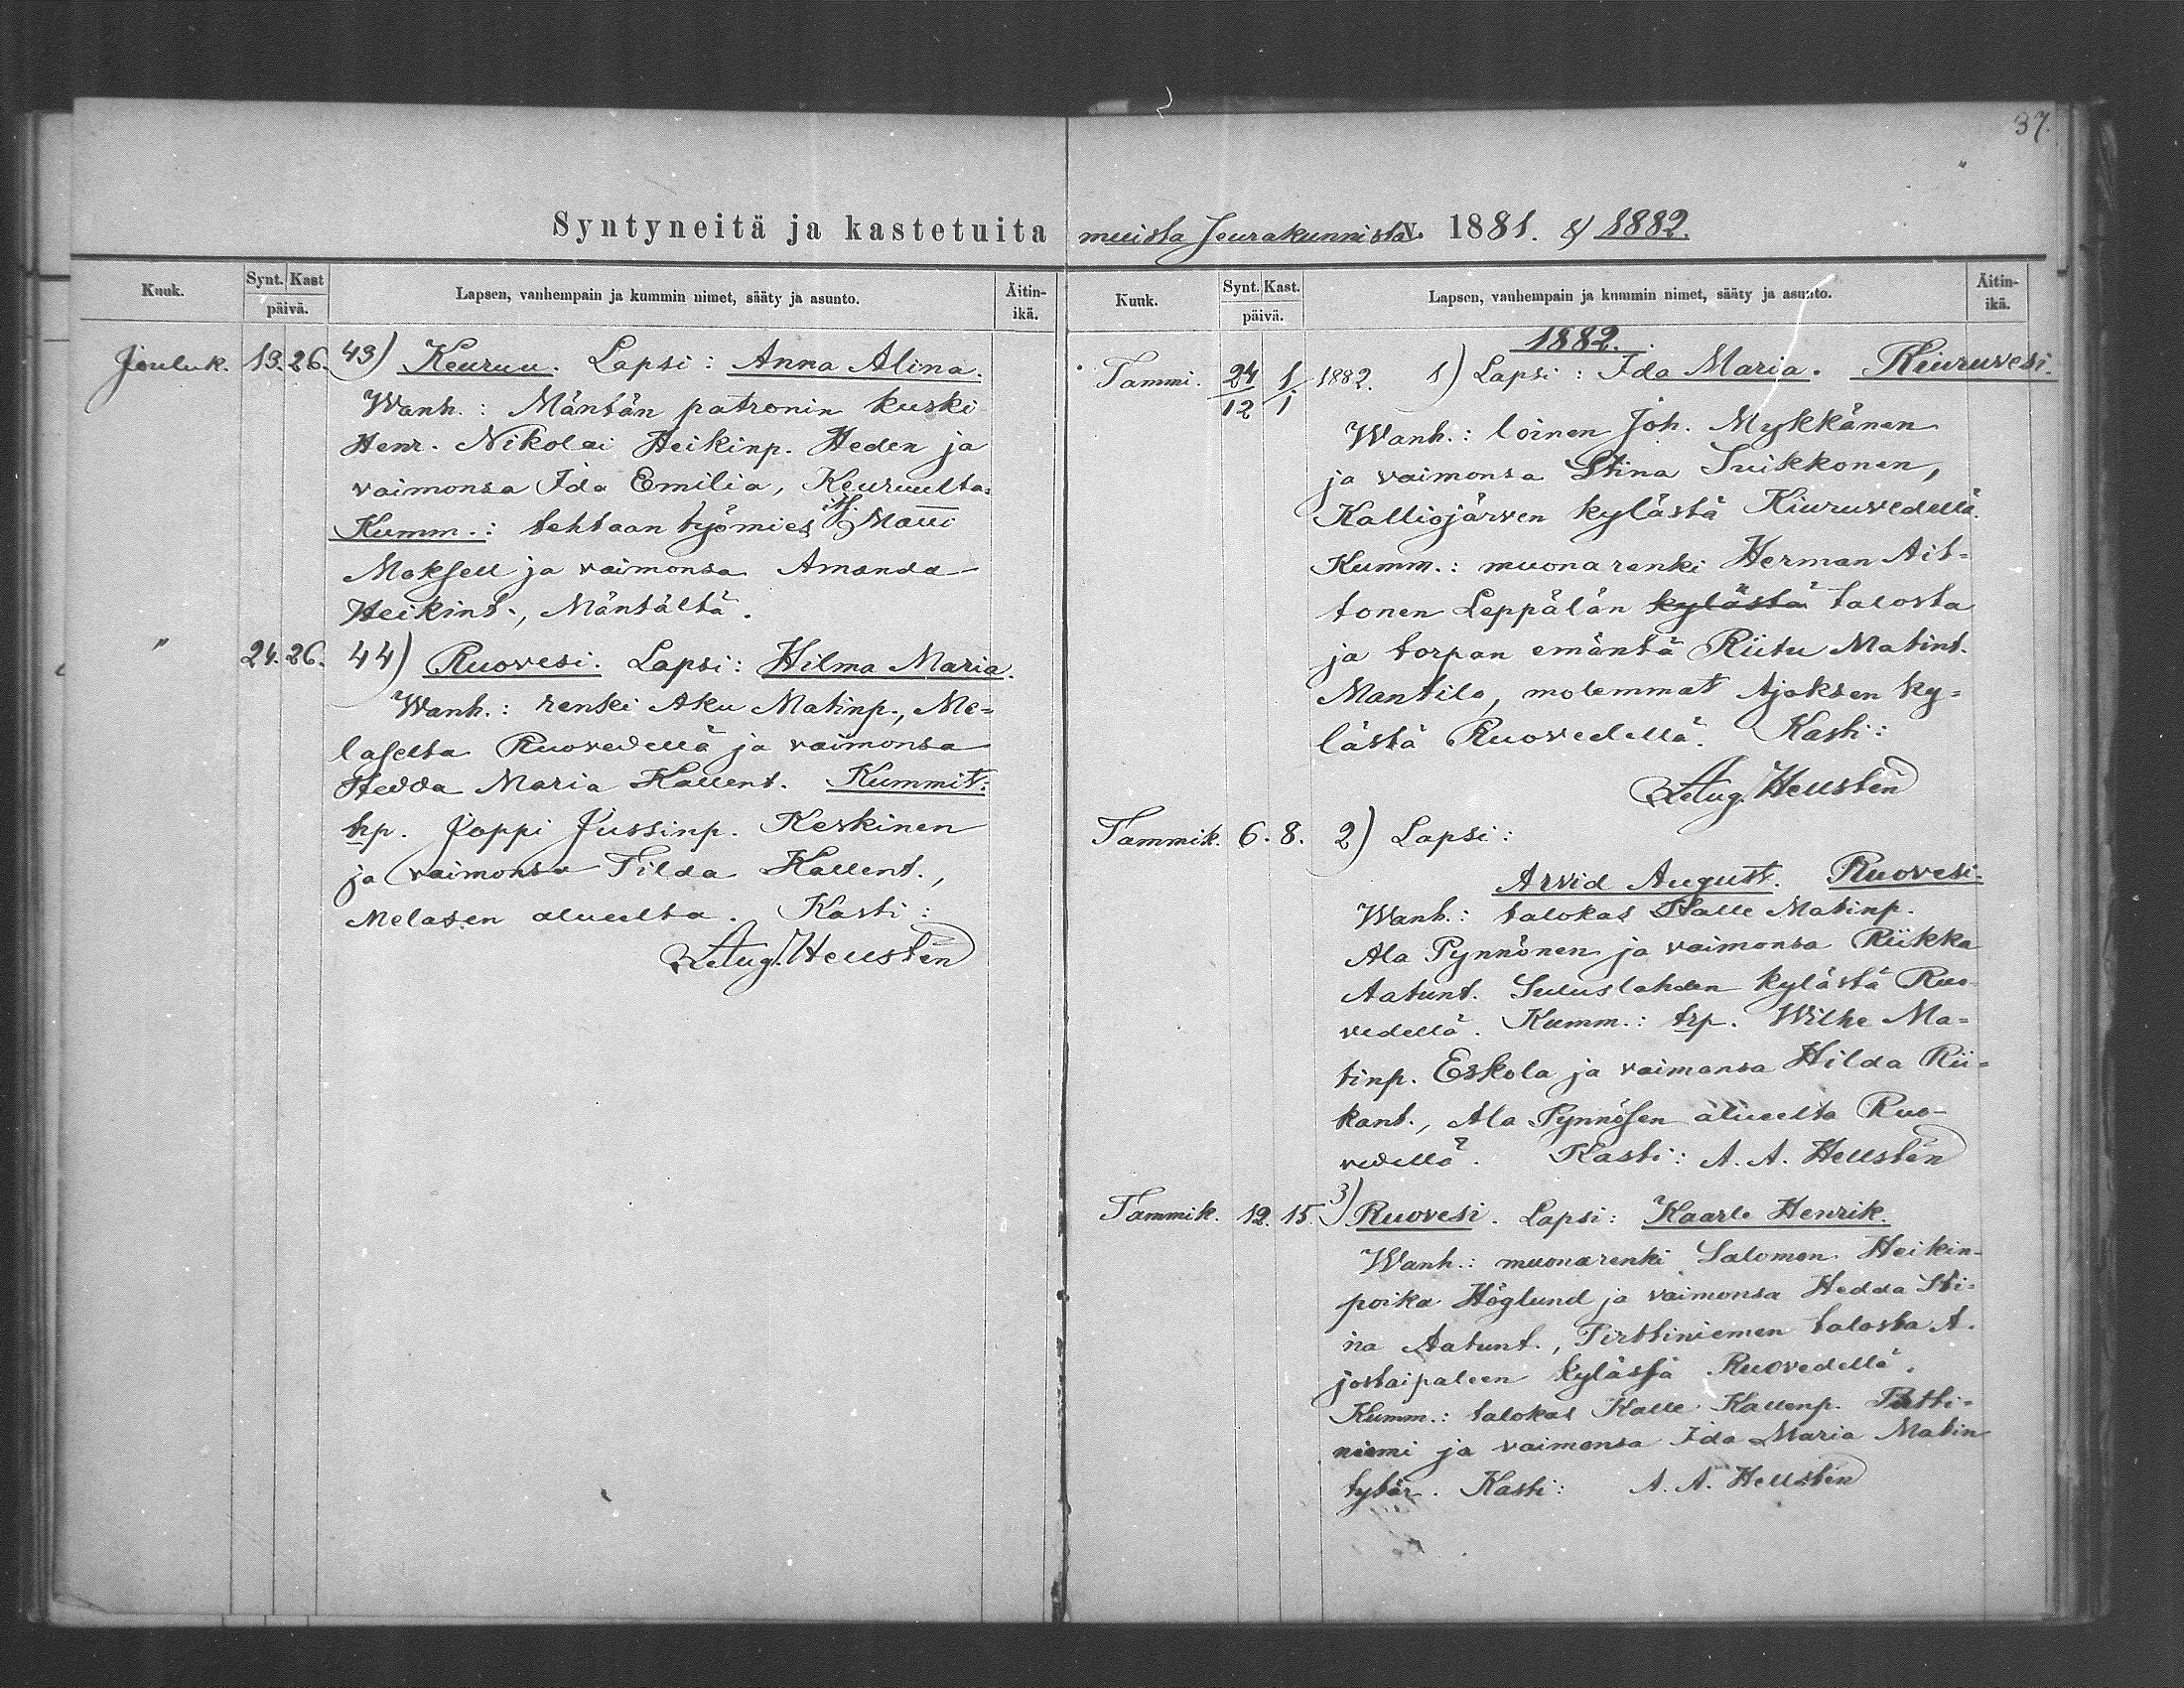 37.
Syntyneitä ja kastetuita muista seurakunnista v. 1881. & 1882.
Kuuk. Synt. Kast päivä. Lapsen, vanhempain ja kummin nimet, sääty ja asunto. Äitin-ikä.
Jouluk. 19. 26. 43) Keuruu. Lapsi: Anna Alina.
Wanh.: Mäntän patronin kuski
Henr. Nikolai Heikinp. Heden ja
vaimonsa Ida Emilia, Keuruulta.
Kumm.: tehtaan työmies Matti
Moksell ja vaimonsa Amanda
Heikint., Mäntältä.
" 24. 26. 44) Ruovesi. Lapsi: Hilma Maria.
Wanh.: renki Aku Matinp., Me=
laselta Ruovedellä ja vaimonsa
Hedda Maria Kallent. Kummit:
trp. Joppi Jussinp. Keskinen
ja vaimonsa Tilda Kallent.,
Melasen alueelta. Kasti:
Aug. Hellstén
Kuuk. Synt. Kast. päivä. Lapsen, vanhempain ja kummin nimet, sääty ja asunto. Äitin-ikä.
1882.
Tammi. 24/12 1/1 1882. 1) Lapsi: Ida Maria. Kiuruvesi.
Wanh.: loinen Joh. Mykkänen
ja vaimonsa Stina Suikkonen,
Kalliojärven kylästä Kiuruvedellä.
Kumm.: muonarenki Herman Ait=
tonen Leppälän kylästä talosta
ja torpan emäntä Riitu Matint.
Mantila, molemmat Ajoksen ky=
lästä Ruovedellä. Kasti:
Aug. Hellstén
Tammik. 6. 8. 2) Lapsi:
Arvid August. Ruovesi.
Wanh.: talokas Kalle Matinp.
Ala Pynnönen ja vaimonsa Riikka
Aatunt. Suluslahden kylästä Ruo-
vedellä. Kumm.: trp. Wilhe Ma=
tinp. Eskola ja vaimonsa Hilda Rii=
kant., Ala Pynnösen alueelta Ruo-
vedellä. Kasti: A. A. Hellstén
Tammik. 12. 15. 3) Ruovesi. Lapsi: Kaarle Henrik.
Wanh.: muonarenki Salomon Heikin-
poika Höglund ja vaimonsa Hedda Sti=
na Aatunt., Pirttiniemen talosta A.
jostaipaleen kylässä Ruovedellä.
Kumm.: talokas Kalle Kallenp. Pirtti=
niemi ja vaimonsa Ida Maria Matin
tytär. Kasti: A. A. Hellstén